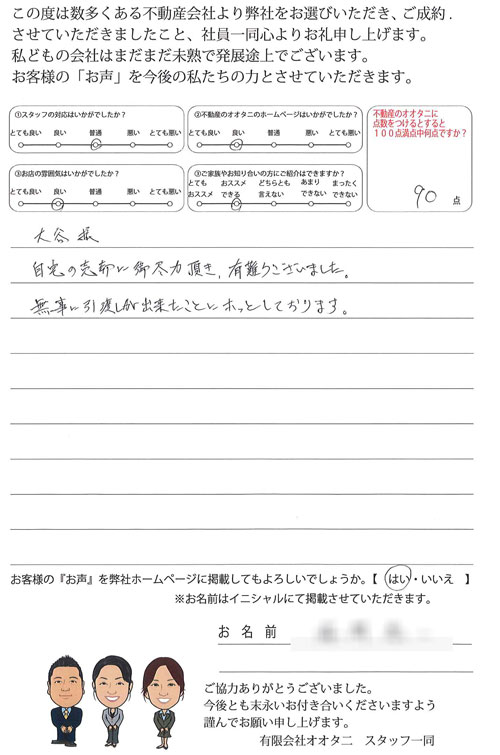 この度は数多くある不動産会社より弊社をお選びいただき、ご成約.
させていただきましたこと、社員一同心よりお礼申し上げます。
私どもの会社はまだまだ未熟で発展途上でございます。
お客様の「お声」を今後の私たちの力とさせていただきます。
①スタッフの対応はいかがでしたか?
とても良い 良い 普通 悪い とても悪い
②不動産のオオタニのホームページはいかがでしたか?
とても良い 良い 普通 悪い とても悪い
不動産のオオタニに
点数をつけるとすると
100点満点中何点ですか?
90 点
③お店の雰囲気はいかがでしたか?
とても良い 良い 普通 悪い とても悪い
③ご家族やお知り合いの方にご紹介はできますか?
とても おススメ どちらとも あまり まったく
おススメ できる 言えない できない できない
大谷 様
自宅の売却に御尽力頂き、有難うございました。
無事に引渡しが出来たことにホッとしております。
お客様の『お声』を弊社ホームページに掲載してもよろしいでしょうか。【 はい・いいえ 】
※お名前はイニシャルにて掲載させていただきます。
お 名 前
ご協力ありがとうございました。
今後とも末永いお付き合いくださいますよう
謹んでお願い申し上げます。
有限会社オオタニ スタッフ一同